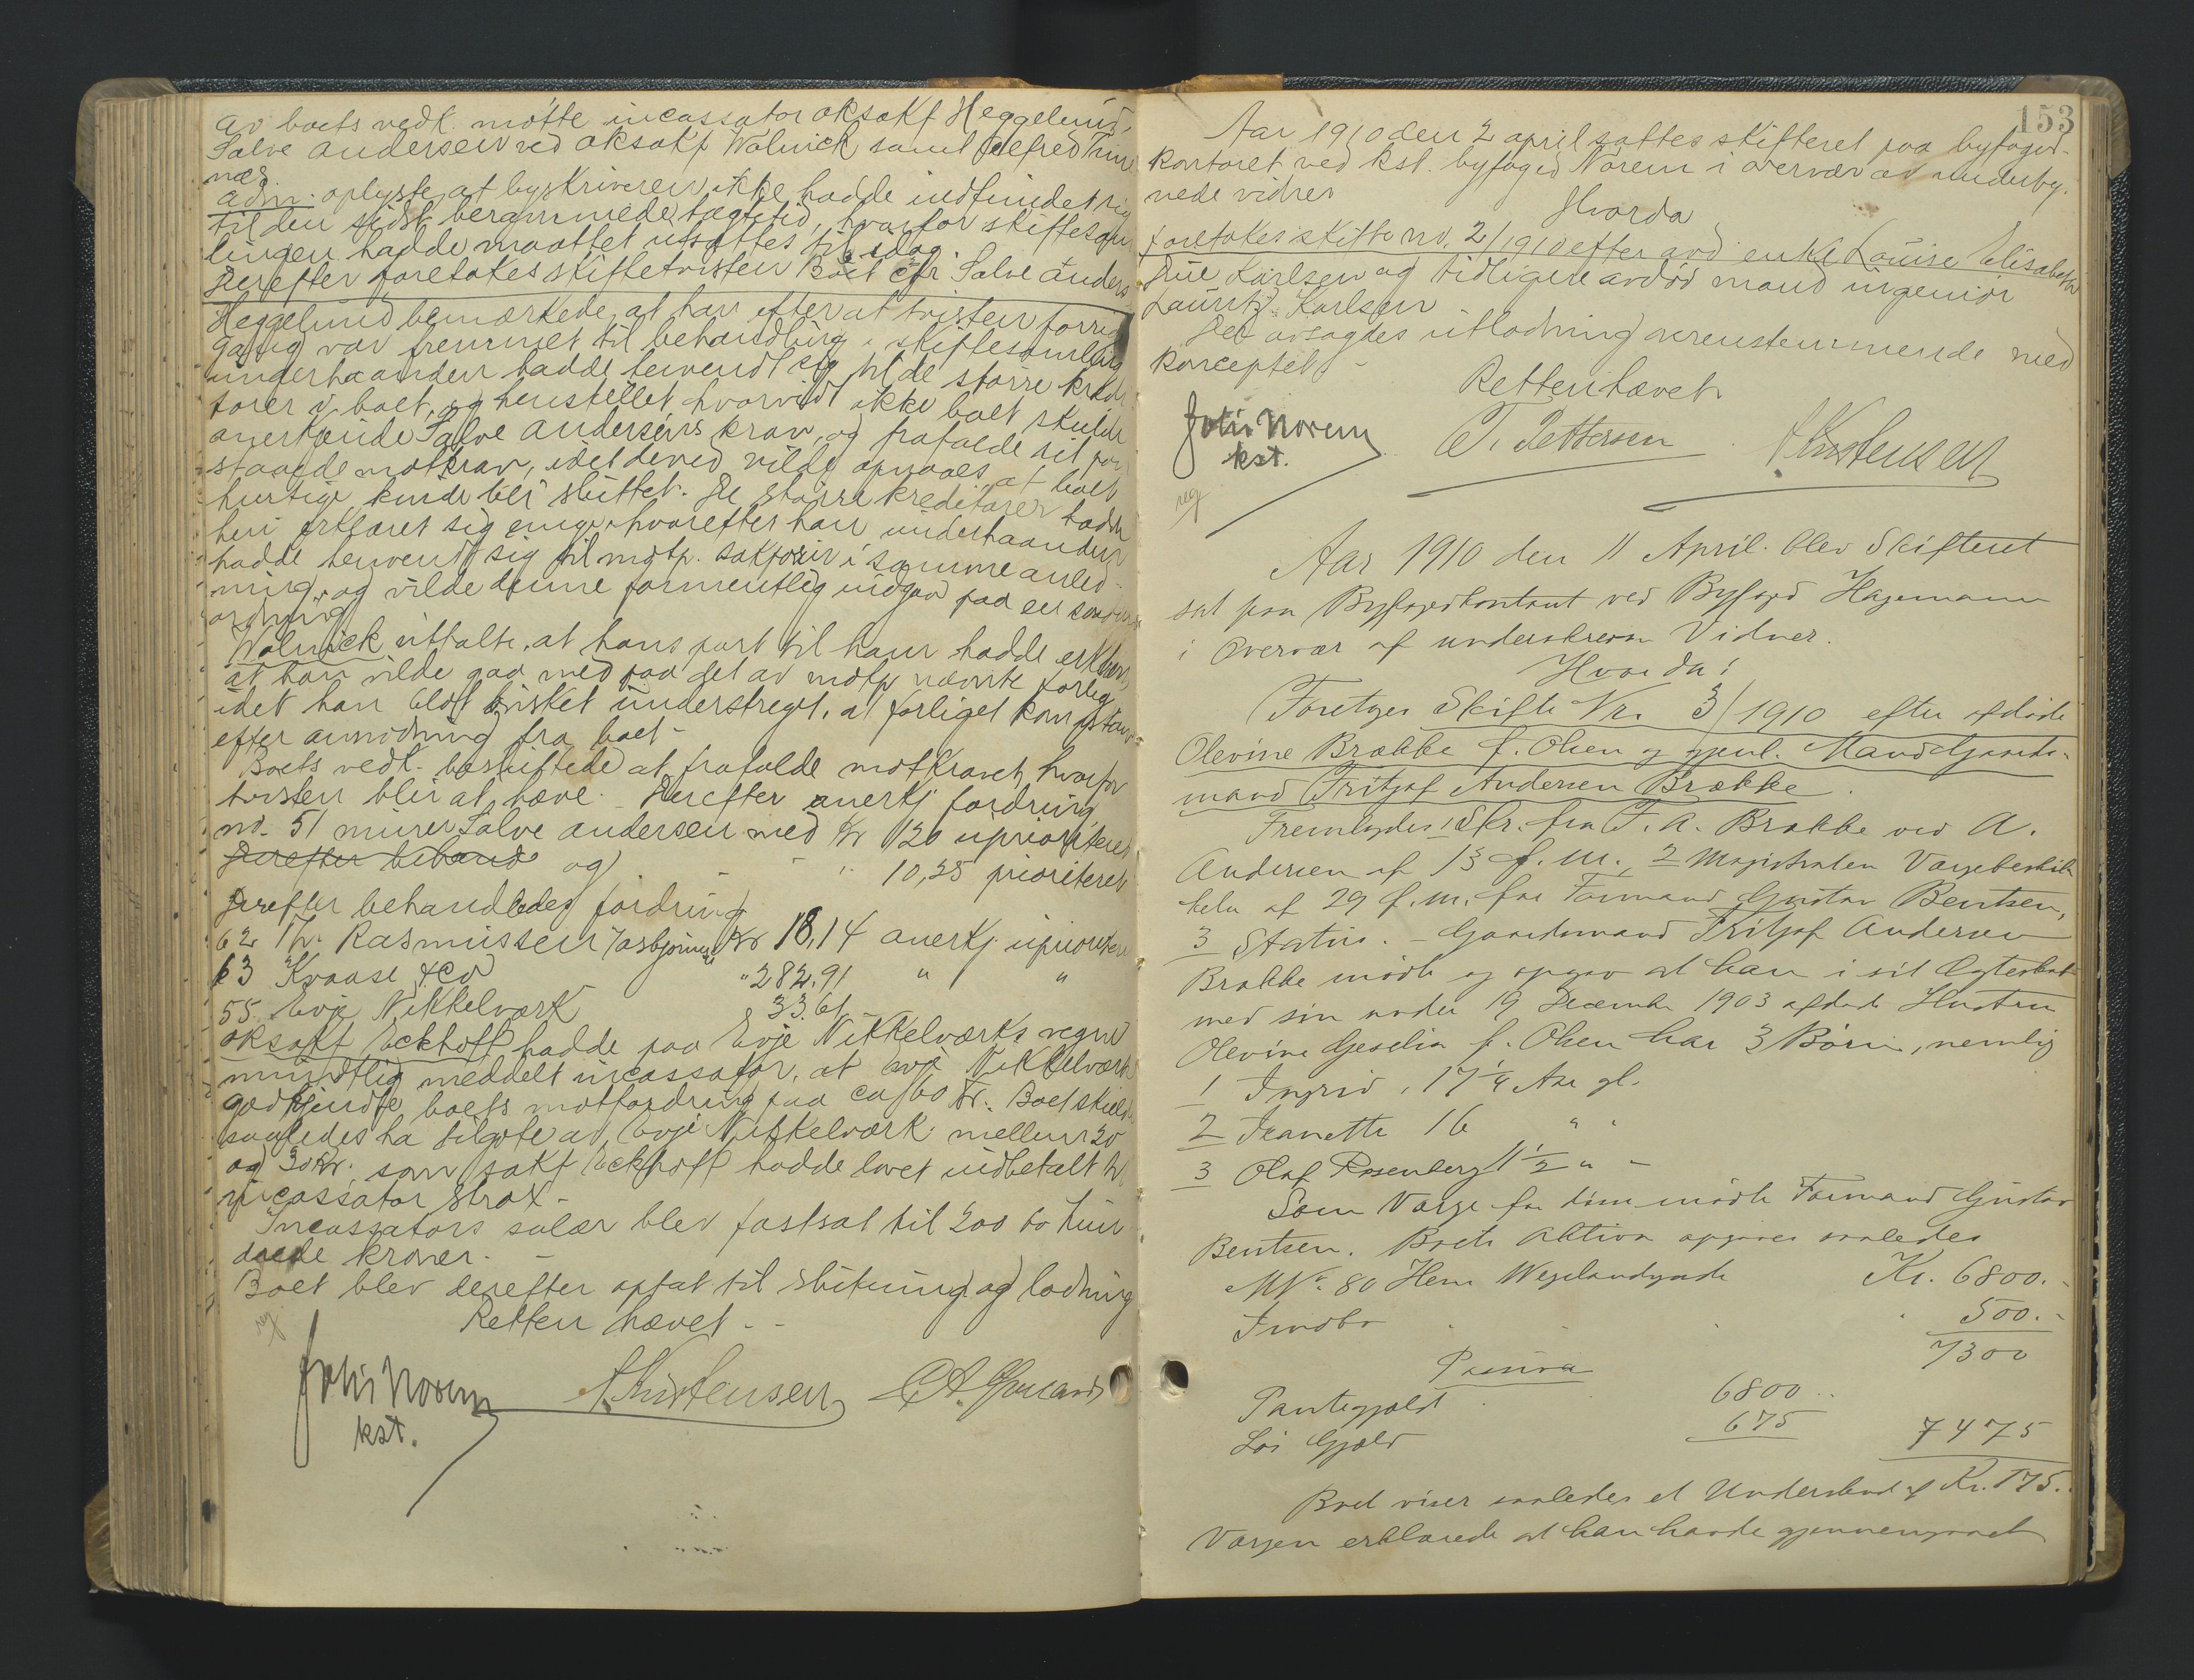 av boets vedk. møtte incassator oksakf Heggelund,
Salve Andersen ved oksakf Wolnick samt Alfred
nes
adm. oplyste, at byskriveren ikke hadde indfundet sig
til den sidst berammede tægtetid, hvorfor skiftesam
lingen hadde maattet utsættes til idag.
Derefter foretokes skiftetvisten Boet ctr Salve Anders
Heggelund bemærkede, at han efter at tvisten forrige
gang var fremmet til behandling i skiftesamling
underhaanden hadde henvendt sig til de større kredi
torer i boet, og henstillet hvorvidt ikke boet skulde
anerkjende Salve Andersens krav, og frafalde sit paa
staaede motkrav, idet derved vilde opnaaes, at boet
hurtig kunde bli sluttet. De større kreditorer hadde
heri erklæret sig enige, hvorefter han underhaanden
hadde henvendt sig til motp. sakfører i samme anled-
ning, og vilde denne formentlig indgaa paa en saadan
ordning
Wolnick uttalte, at hans part til ham hadde erklæret,
at han vilde gaa med paa det av motp nævnte forlig
idet han blot ønsket understreget, at forliget kom istand
efter anmodning fra boet -
Boets vedk. besluttede at frafalde motkravet, hvorfor
tvisten blir at hæve. Derefter anerkj fordring
no. 51 murer Salve Andersen med Kr 120 uprioriteret
Derefter behand og " 10,25 prioriteret
Derefter behandledes fordring
62 Th. Rasmussen Kr 18,14 anerkj. uprioritere
63 Kraase & Co " 282,91 " "
55. Evje Nikkelværk 33.61
oksakf Eckhoff hadde paa Evje Nikkelværks vegne
mundtlig meddelt incassator, at Evje Nikkelværk
godkjendte boets motfordring paa ca 60 kr. Boet skulde
saaledes ha tilgode av Evje Nikkelværk mellem 20
og 30 kr. som sakf Eckhoff hadde lovet indbetalt til
incassator strax -
Incassators salær blev fastsat til 200 to hun
drede kroner. -
Boet blev derefter optat til slutning og lodning
Retten hævet - -
reg
John Norem
kst.
A. Kristensen
153
Aar 1910 den 2 april sattes skifteret paa byfoged-
kontoret ved kst. byfoged Norem i overvær av underteg-
nede vidner
Hvorda
foretokes skifte no. 2/1910 efter avd. enke Louise Elisabeth
Due Karlsen og tidligere avdød mand ingeniør
Lauritz Karlsen
Det avsagdes utlodning overenstemmende med
konceptet -
Retten hævet
John Norem
kst.
T. Pettersen
A. Kristensen
reg
Aar 1910 den 11 April blev Skifteret
sat paa Byfogedkontoret ved Byfoged Hagemann
i Overvær af underskrevne Vidner.
Hvorda!
Foretages Skifte Nr. 3/1910 efter afdøde
Olevine Brække f. Olsen og gjenl. Mand Gaards-
mand Fritjof Andersen Brække.
Fremlagdes 1 Skr. fra F. A. Brække ved A.
Andersen af 13 f. M., 2 Magistraten Værgebeskik
kelse af 29 f. m. for Formand Gustav Bentsen,
3 Status. - Gaardsmand Fritjof Andersen
Brække mødte og opgav at han i sit Ægteskab
med sin under 19 Decembr 1903 afdøde Hustru
Olevine Geselia f. Olsen har 3 Børn, nemlig
1 Ingrid, 17 1/4 Aar gl.
2 Jeanette 16 " "
3 Olaf Rosenberg 11 1/2 " -
Som Værge for dem mødte Formand Gustav
Bentsen. Boets Aktiva opgives saaledes
MNr. 80 Henr Wergelandsgade Kr. 6800.-
Indbo 500.-
7300
Passiva
Pantegjæld 6800
Løs Gjæld 675 7475
Boet viser saaledes et Underskud af Kr. 175.
Værgen erklærede at han havde gjennemgaaet